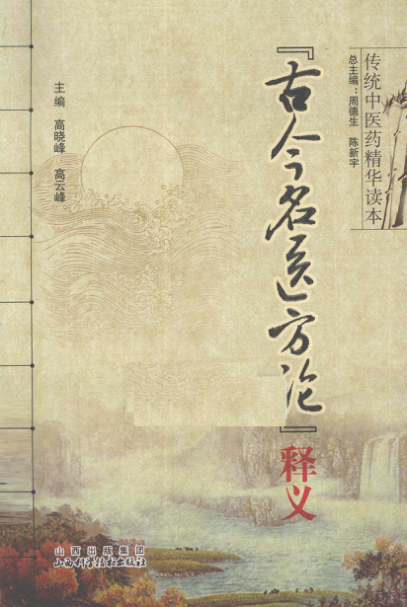 传统中医药精华读本
总主编：周德生 陈新宇
『古今名医方论』
释义
主编 高晓峰 高云峰
山西出版集团
山西科学技术出版社